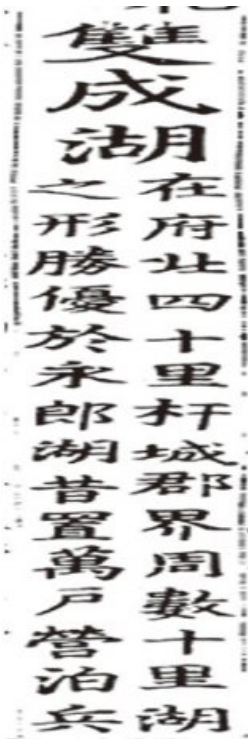 雙成湖
在府北四十里杆城郡界周數十里湖
之形勝優於永郎湖昔置萬戶營泊兵